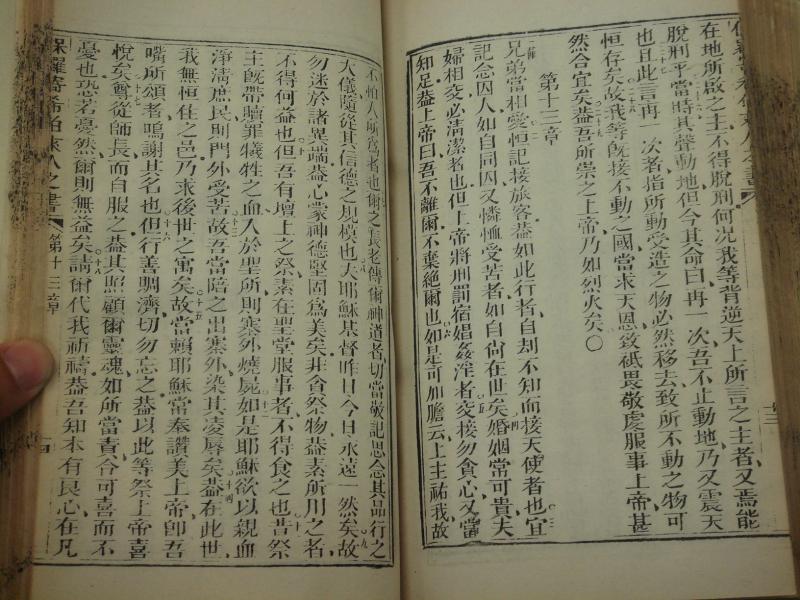 在地所啟之主不得脫刑何况我等背逆天上所言之主者又焉能
脫刑乎當時其聲動地但今其命曰再一次吾不止動地乃又震天
也且此言再一次者指所動受造之物必然移去致所不動之物可
恒存矣故我等旣接不動之國當求天恩致祇畏敬虔服事上帝甚
然合宜矣蓋吾所崇之上帝乃如烈火矣〇
第十三章
兄弟當相愛恒記接旅客蓋如此行者自却不知而接天使者也宜
記念囚人如自同囚又憐恤受苦者如自尚在世矣婚姻常可貴夫
婦相交必清潔者也但上帝將刑罰宿娼姦淫者交接勿貪心又當
知足蓋上帝曰吾不離爾不棄絕爾也如是可加膽云上主祐我故
不怕人所為者也爾之長老傳爾神道者切當敬記思念其品行之
大儀隨從其信德之規模也夫耶穌基督昨日今日永遠一然矣故
勿迷於諸異端蓋心蒙神德堅固為美矣非食祭物蓋素所用之者
不得何益也但吾有壇上之祭素在聖堂服事者不得食之也昔祭
主旣帶贖罪犧牲之血入於聖所則寨外燒屍如是耶穌欲以親血
淨清庶民則門外受苦故吾當陪之出寨外染其凌辱矣蓋在此世
我無恒住之邑乃求後世之寓矣故當賴耶穌常奉讚美上帝卽吾
嘴所頌者嗚謝其名也但行善賙濟切勿忘之蓋以此等祭上帝喜
悅矣尊從師長而自服之蓋其照顧爾靈魂如所當責合可喜而不
憂也恐若憂然爾則無益矣請爾代我祈禱蓋吾知本有良心在凡
保羅寄希伯來人之書 第十三章